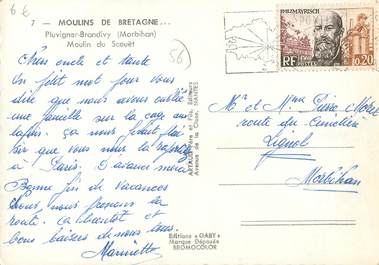 66
7 — MOULINS DE BRETAGNE...
Pluvigner-Brandivy (Morbihan)
Moulin du Scouët
56
Chers oncle et tante
Un petit mot pour vous
dire que nous avons oublié
une gamelle sur la cage au
lapin. ça nous ferait plai-
sir que vous nous la
à Paris. D'avance merci
Bonne fin de vacances
nous prenons la
route. à bientôt et
bons baisers de nous tous.
Mariette
ARTAUD Père et Fils, Editeurs
Avenue de la Close, NANTES
Editions « GABY »
Marque Déposée
BROMOCOLOR
EMILE MAYRISCH
RF
POSTES
0,20
Mr et Mme
route du Cimetière
Lignol
Morbihan